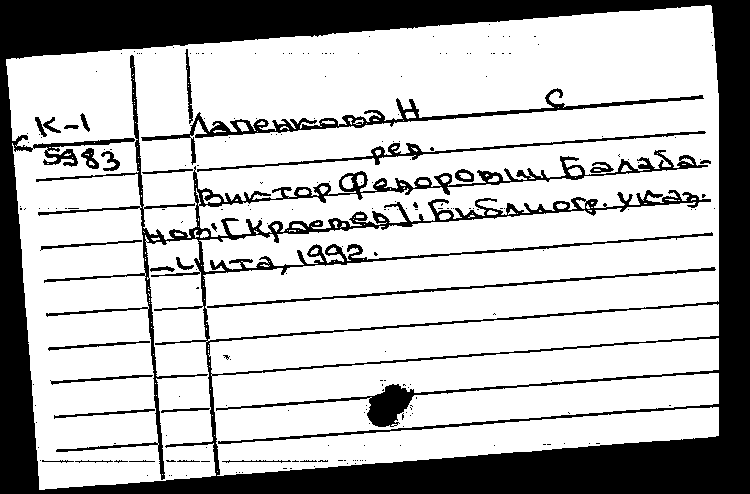 К-1 Лапенкова, Н С
С 5983 ред.
Виктор Федорович Балаба-
нов: [Краевед]: Библиогр. указ.
-Чита, 1992.